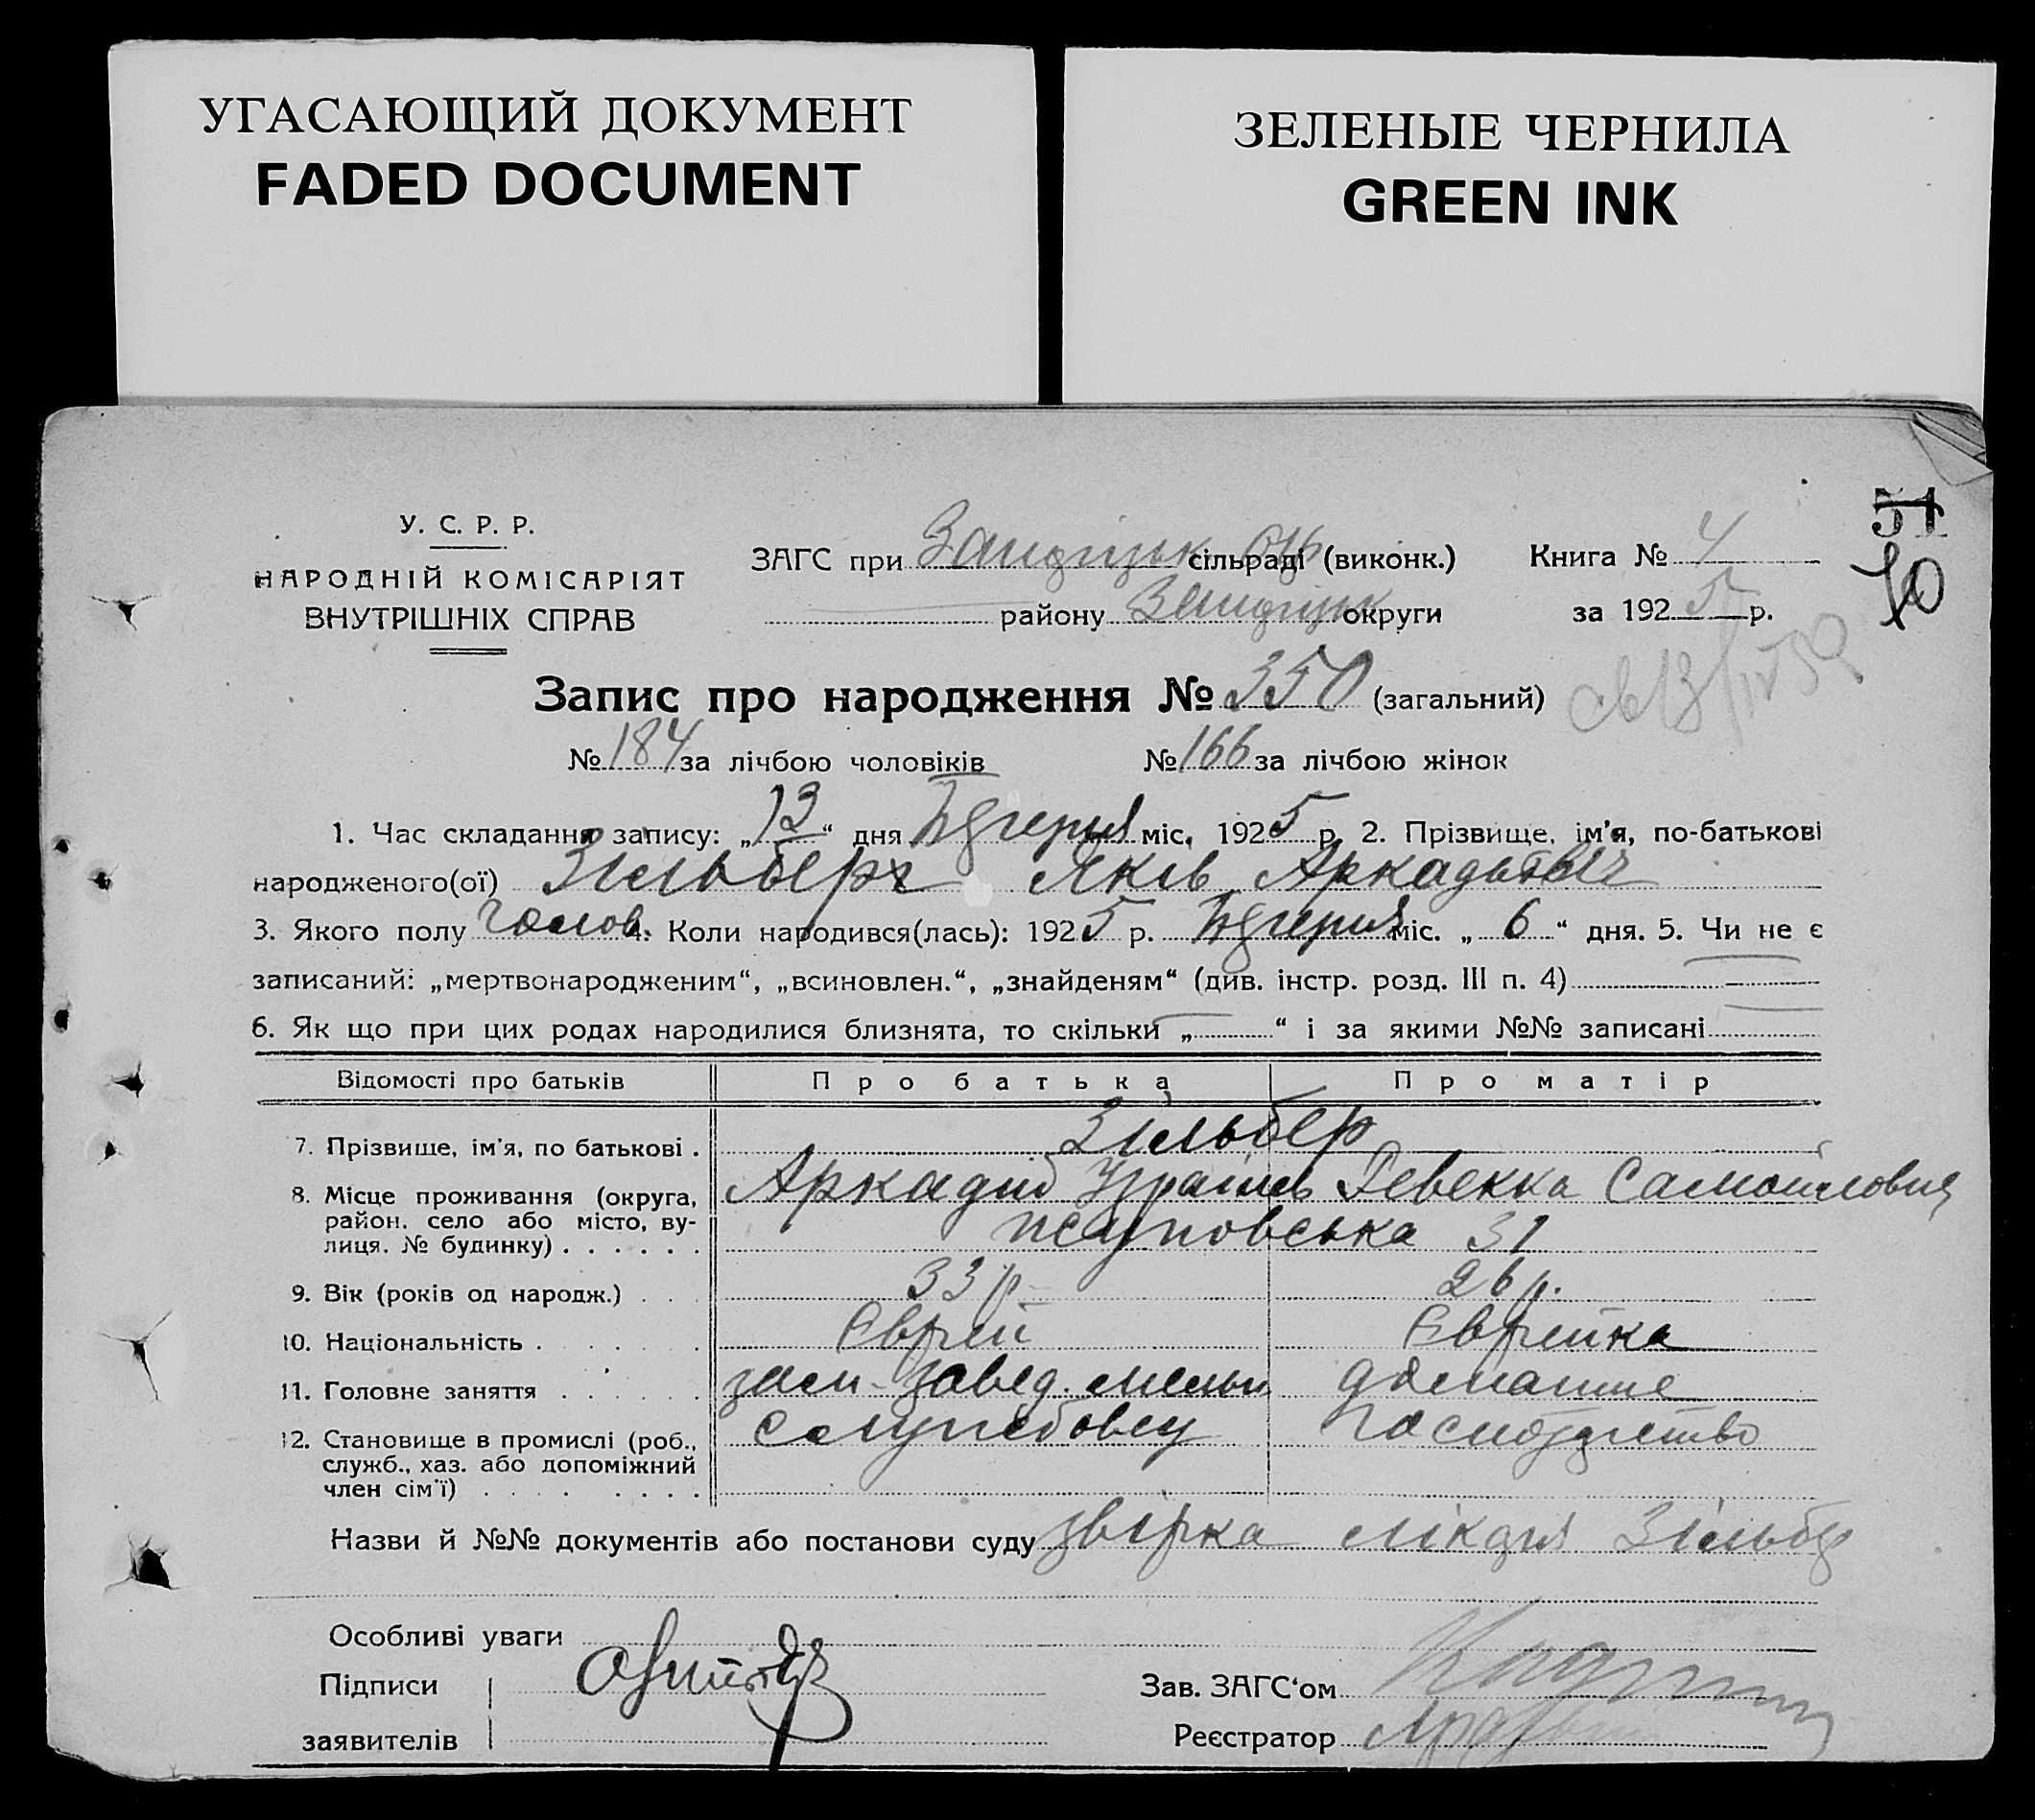 УГАСАЮЩИЙ ДОКУМЕНТ
FADED DOCUMENT
ЗЕЛЕНЫЕ ЧЕРНИЛА
GREEN INK
51
10
У. С. Р. Р.
НАРОДНІЙ КОМІСАРІЯТ
ВНУТРІШНІХ СПРАВ
ЗАГС при сільраді (виконк.) Книга № 4
району округи за 1925 р.
Запис про народження № 350 (загальний)
№ 184 за лічбою чоловіків № 166 за лічбою жінок
1. Час складання запису: „13“ дня міс. 1925 р. 2. Прізвище, ім'я, по-батькові
народженого(ої) Зільберг Яків Аркадьевіч
3. Якого полу чолов. 4. Коли народився(лась): 1925 р. міс. „6“ дня. 5. Чи не є
записаний: „мертвонародженим“, „всиновлен.“, „знайденям“ (див. інстр. розд. III п. 4) —
6. Як що при цих родах народилися близнята, то скільки „—“ і за якими №№ записані —
Відомості про батьків Про батька Про матір
7. Прізвище, ім'я, по батькові . Зільбер
Аркадий Ревекка Самойловна
8. Місце проживання (округа,
район, село або місто, ву-
лиця, № будинку) . . . . . . 31
9. Вік (років од народж.) . . . 33 р. 26 р.
10. Національність . . . . . Єврей Єврейка
11. Головне заняття . . . . . . зам. завед. домашнє
12. Становище в промислі (роб.,
служб., хаз. або допоміжний
член сім'ї) . . . . . . . . службовец господарство
Назви й №№ документів або постанови суду звірка лікаря Зільбер
Особливі уваги
Підписи
заявителів
Зав. ЗАГС‘ом
Реєстратор